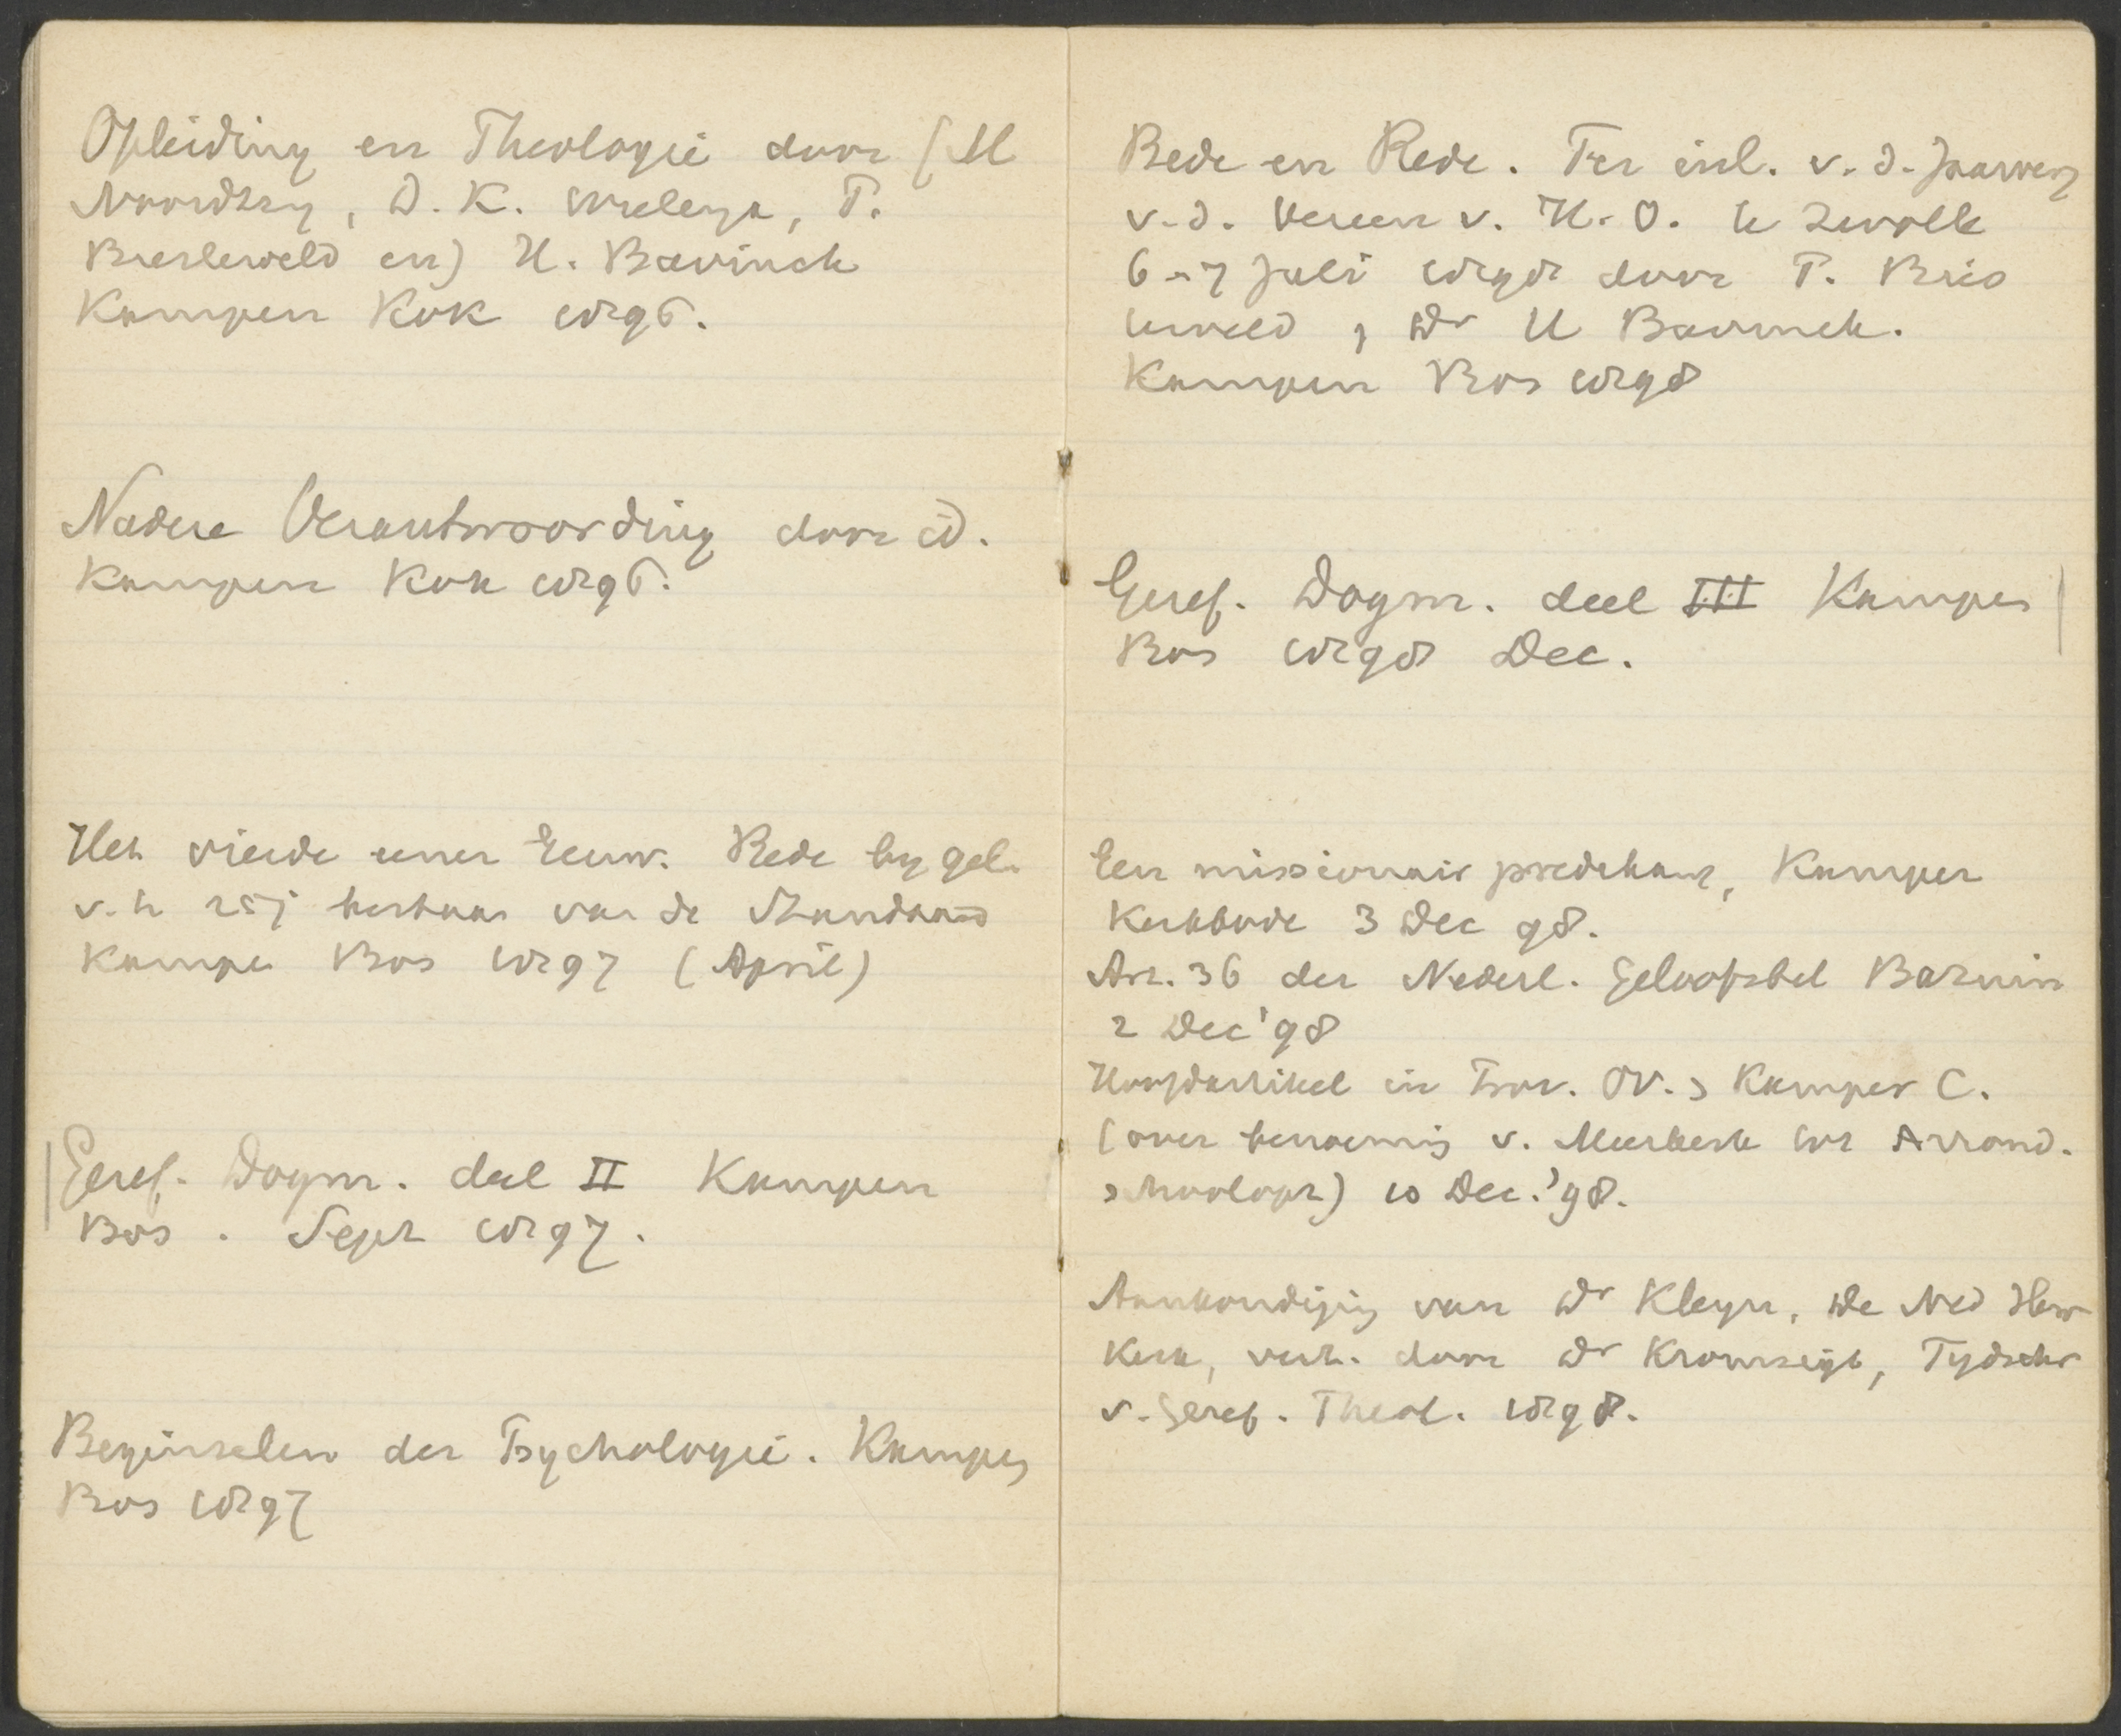 Opleiding en Theologie door (M
Noordtzy, D. K. Wielenga, P.
Biesterveld en) H. Bavinck
Kampen Kok 1896.
Nadere Verantwoording door id.
Kampen Kok 1896.
Het vierde eener Eeuw. Rede by gel.
v. h 25j bestaan van de Standaard
Kampe Bos 1897 (April)
Geref. Dogm. deel II Kampen
Bos. Sept 1897.
Beginselen der Psychologie. Kampen
Bos 1897
Bede en Rede. Ter inl. v. d. Jaarverg
v. d. Vereen v. H. O. te Zwolle
6 - 7 Juli 1898 door P. Bies
terveld, Dr H Bavinck.
Kampen Bos 1898
Geref. Dogm. deel III Kampen
Bos 1898 Dec.
Een missionair predikant, Kamper
Kerkbode 3 Dec 98.
Art. 36 der Nederl. Geloofsbel Bazuin
2 Dec '98
Hoofdartikel in Prov. Ov. Kamper C.
(over benoeming v. Meerkerk tot Arrond.
schoolopz) 10 Dec. '98.
Aankondiging van Dr Kleyn, De Ned Herv
Kerk, verd. door Dr Kromsigt, Tydschr
v. Geref. Theol. 1898.